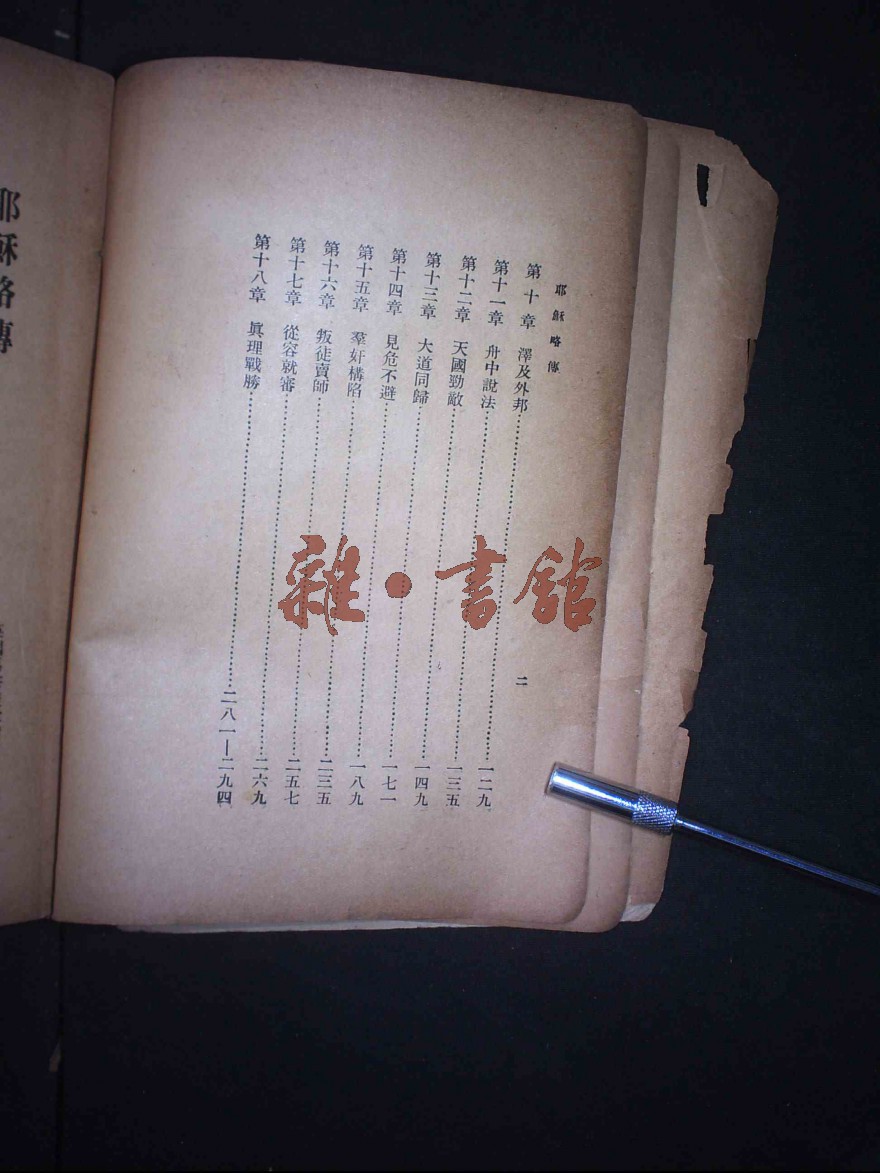 耶穌略傳
二
第十章 澤及外邦……一二九
第十一章 舟中說法……一三五
第十二章 天國勁敵……一四九
第十三章 大道同歸……一七一
第十四章 見危不避……一八九
第十五章 羣奸構陷……二三五
第十六章 叛徒賣師……二五七
第十七章 從容就審……二六九
第十八章 眞理戰勝……二八一—二九四
耶穌略傳
雜·書館